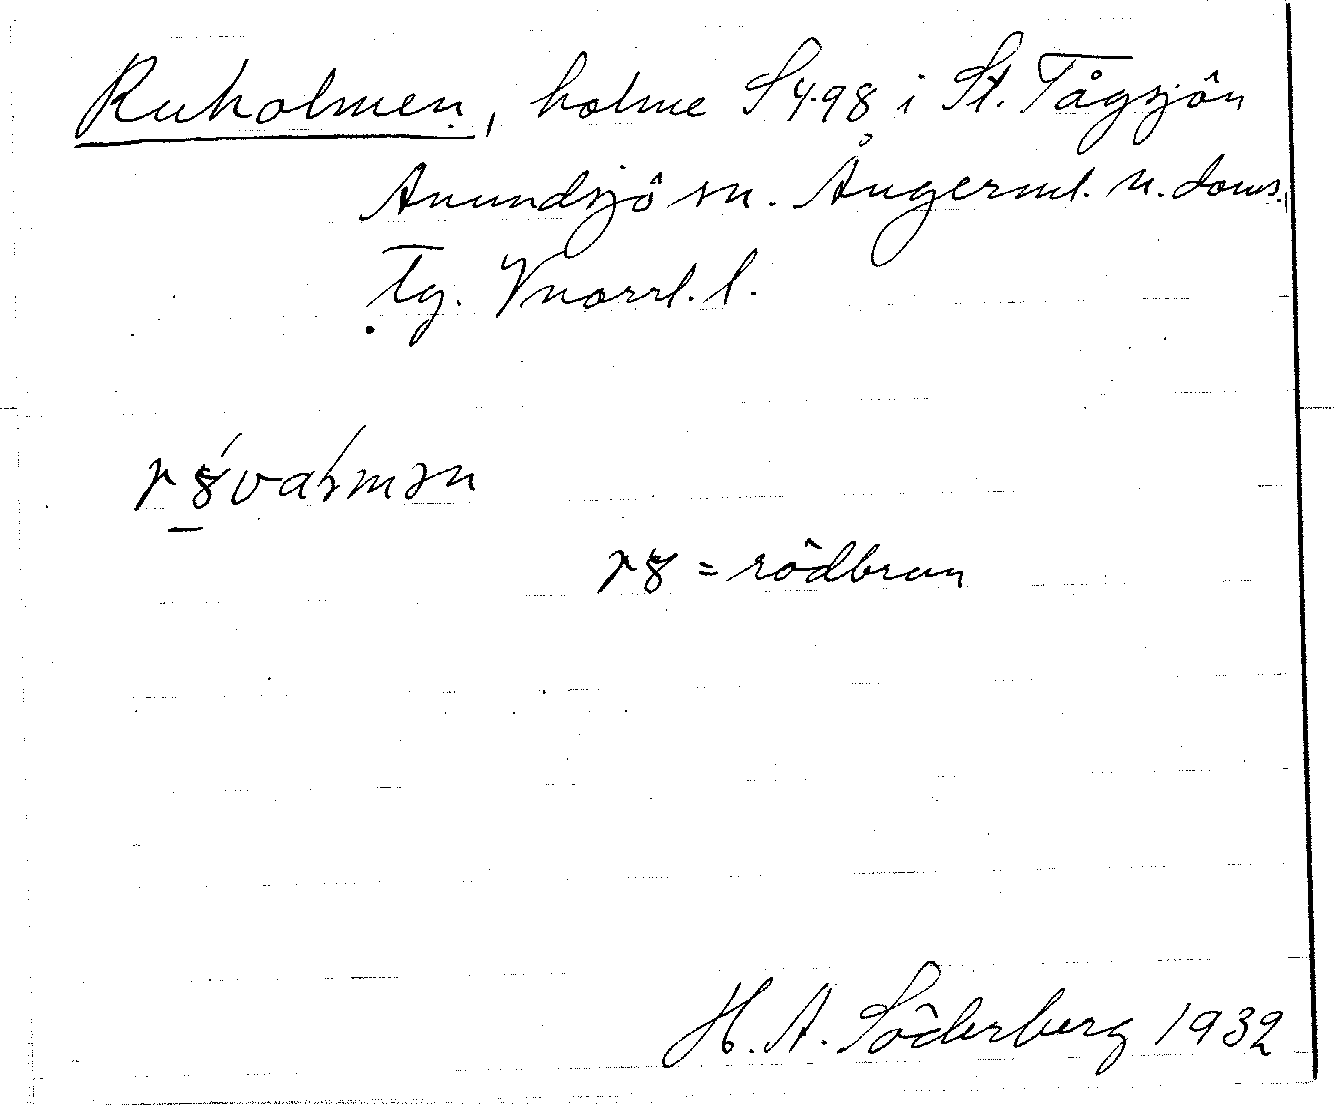 Ruholmen, holme S498 i St. Tågsjön
Anundsjö sn. Ångerml. n. doms.
Tg. Vnorrl. l.
= rödbrun
H. A. Söderberg 1932